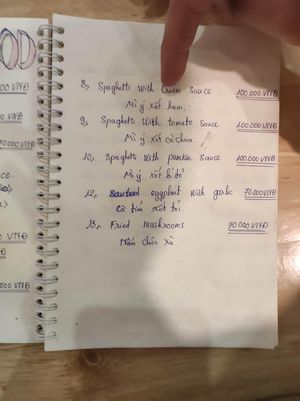 8, Spaghetti with Cream Souce 100.000 VNĐ
Mì ý xốt kem.
9, Spaghetti With tomato Sauce 100.000 VNĐ
Mì ý xốt cà chua
10, Spaghetti With pumkin Souce 100.000 VNĐ
Mì ý xốt bí đỏ.
12, Sauteed eggplant with garlic 70.000 VNĐ
Cà tím xốt tỏi.
13, Fried mushrooms 70.000 VNĐ
Nấm Chiên Xù